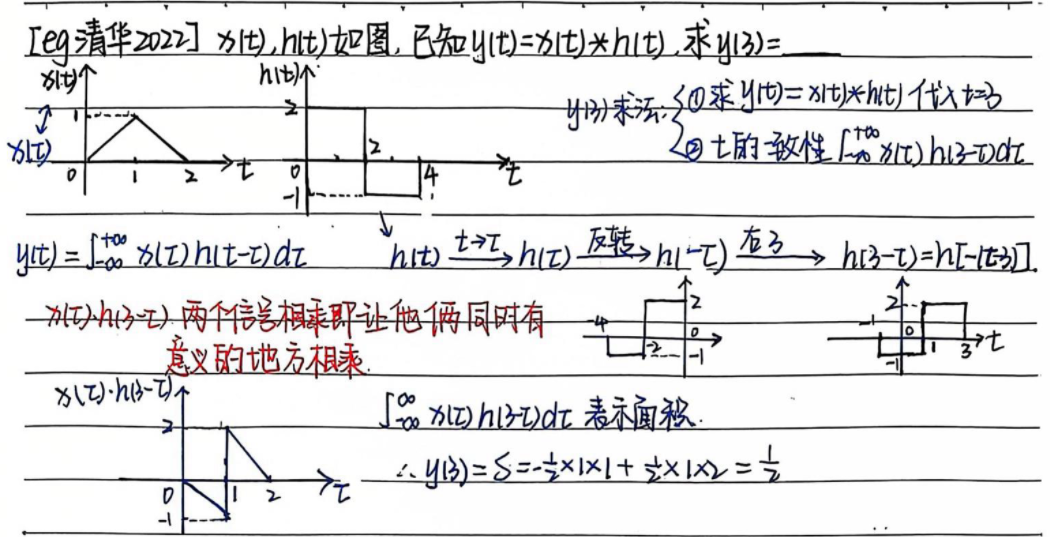 [eg清华2022] x(t),h(t)如图,已知y(t)=x(t)*h(t),求y(3)=____
x(t) 1 x(τ) 0 1 2 t
h(t) 2 0 -1 2 4 t
y(3)求法: ①求y(t)=x(t)*h(t)代入t=3
②t的一致性∫_{-∞}^{+∞}x(τ)h(3-τ)dτ
y(t)=∫_{-∞}^{+∞}x(τ)h(t-τ)dτ h(t) t→τ h(τ) 反转 h(-τ) 右3 h(3-τ)=h[-(τ-3)].
x(τ)·h(3-τ) 两个信号相乘即让他俩同时有
意义的地方相乘.
-4 -2 2 0 -1
2 -1 0 1 3 t -1
x(τ)·h(3-τ) 2 0 1 2 τ -1
∫_{-∞}^{∞}x(τ)h(3-τ)dτ 表示面积.
∴y(3)=S=-½×1×1+½×1×2=½